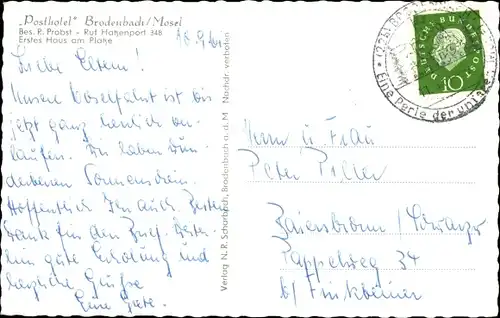 „Posthotel" Brodenbach/Mosel
Bes. R. Probst - Ruf Hatzenport 348
Erstes Haus am Platze
Liebe Eltern!
Unsere Moselfahrt ist bis
jetzt ganz herrlich ver-
laufen. Wir haben wun-
derbaren Sonnenschein.
Hoffentlich Ihr auch. Besten
Dank für den Brief. Weiter-
hin gute Erholung und
herzliche Grüße
Eure
Verlag N. R. Scharbach, Brodenbach a. d. M. Nachdr. verboten
DEUTSCHE BUNDESPOST
10
Eine Perle der
Herrn u. Frau
Peter
Baiersbronn/Schwarzw.
Pappelweg 34
b/ Finkbeiner